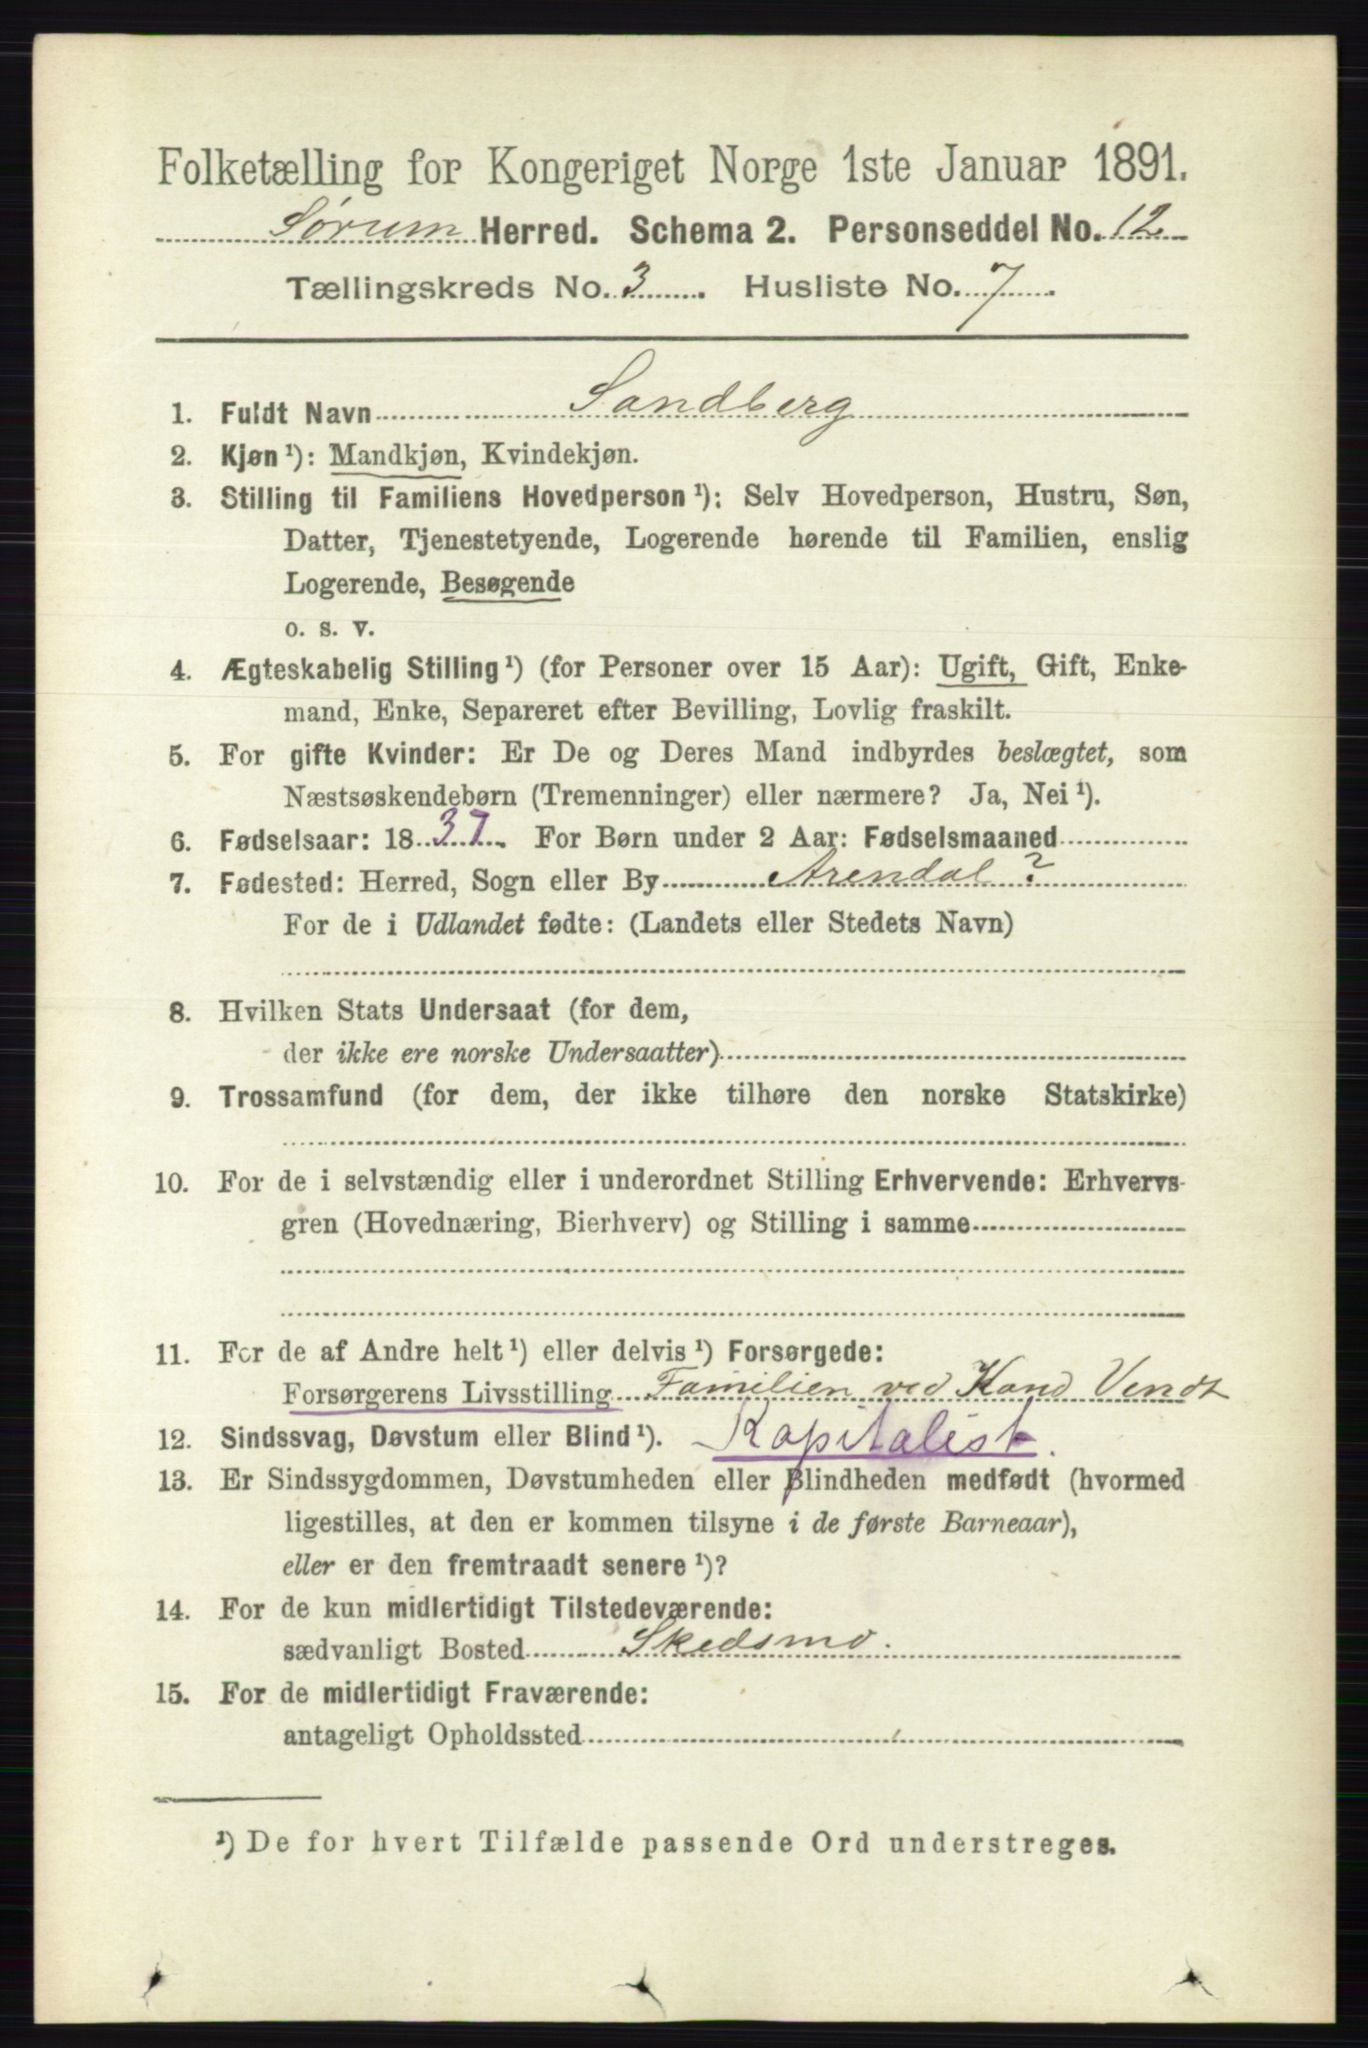 Folketælling for Kongeriget Norge 1ste Januar 1891.
Sørum Herred. Schema 2. Personseddel No. 12
Tællingskreds No. 3. Husliste No. 7.
1. Fuldt Navn Sandberg
2. Kjøn ¹): Mandkjøn, Kvindekjøn.
3. Stilling til Familiens Hovedperson ¹): Selv Hovedperson, Hustru, Søn,
Datter, Tjenestetyende, Logerende hørende til Familien, enslig
Logerende, Besøgende
o. s. v.
4. Ægteskabelig Stilling ¹) (for Personer over 15 Aar): Ugift, Gift, Enke-
mand, Enke, Separeret efter Bevilling, Lovlig fraskilt.
5. For gifte Kvinder: Er De og Deres Mand indbyrdes beslægtet, som
Næstsøskendebørn (Tremenninger) eller nærmere? Ja, Nei ¹).
6. Fødselsaar: 1837. For Børn under 2 Aar: Fødselsmaaned
7. Fødested: Herred, Sogn eller By Arendal ?
For de i Udlandet fødte: (Landets eller Stedets Navn)
8. Hvilken Stats Undersaat (for dem,
der ikke ere norske Undersaatter)
9. Trossamfund (for dem, der ikke tilhøre den norske Statskirke)
10. For de i selvstændig eller i underordnet Stilling Erhvervende: Erhvervs-
gren (Hovednæring, Bierhverv) og Stilling i samme
11. For de af Andre helt ¹) eller delvis ¹) Forsørgede:
Forsørgerens Livsstilling Familien ved Kand Vendt
12. Sindssvag, Døvstum eller Blind ¹). Kapitalist.
13. Er Sindssygdommen, Døvstumheden eller Blindheden medfødt (hvormed
ligestilles, at den er kommen tilsyne i de første Barneaar),
eller er den fremtraadt senere ¹)?
14. For de kun midlertidigt Tilstedeværende:
sædvanligt Bosted Skedsmo.
15. For de midlertidigt Fraværende:
antageligt Opholdssted
¹) De for hvert Tilfælde passende Ord understreges.